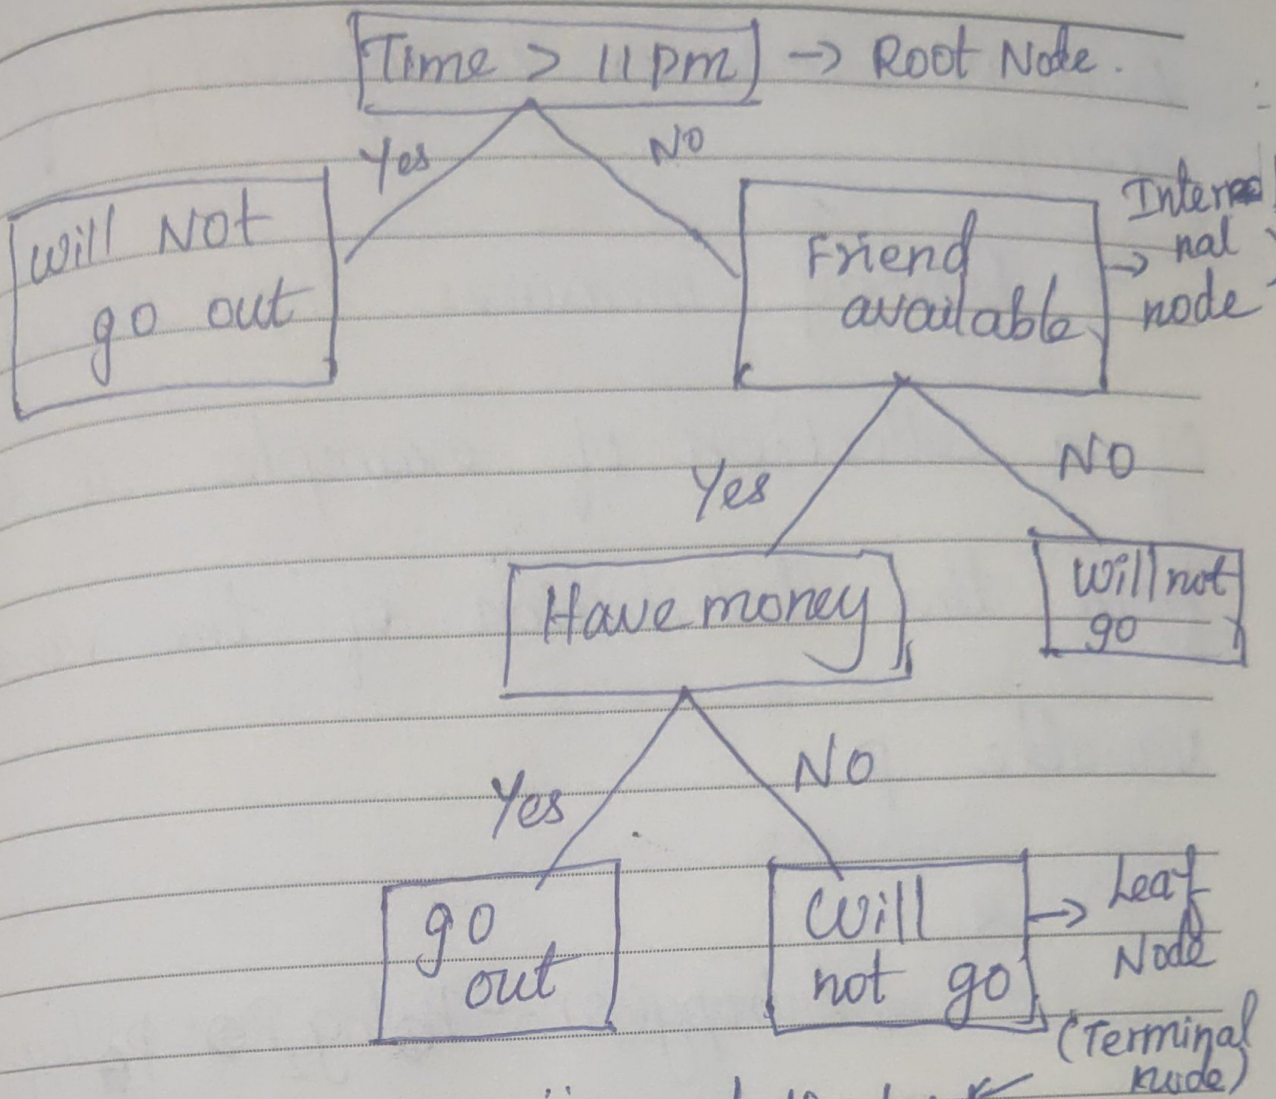 Time > 11 pm → Root Node.
Yes
NO
Will Not
go out
Friend
available
→ Inter
nal
node
Yes
NO
Have money
Will not
go
Yes
NO
go
out
Will
not go
→ Leaf
Node
(Terminal
node)